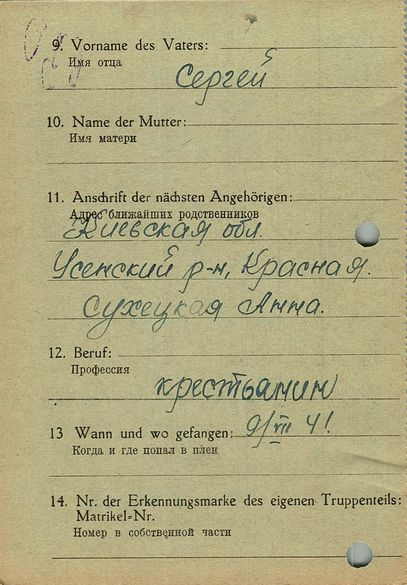 9. Vorname des Vaters:
Имя отца
Сергей
10. Name der Mutter:
Имя матери
11. Anschrift der nächsten Angehörigen:
Адрес ближайших родственников
Киевская обл.
Усенский р-н, Красная.
Сухецкая Анна.
12. Beruf:
Профессия
крестьянин
13 Wann und wo gefangen: 9/VIII 41.
Когда и где попал в плен
14. Nr. der Erkennungsmarke des eigenen Truppenteils:
Matrikel=Nr.
Номер в собственной части